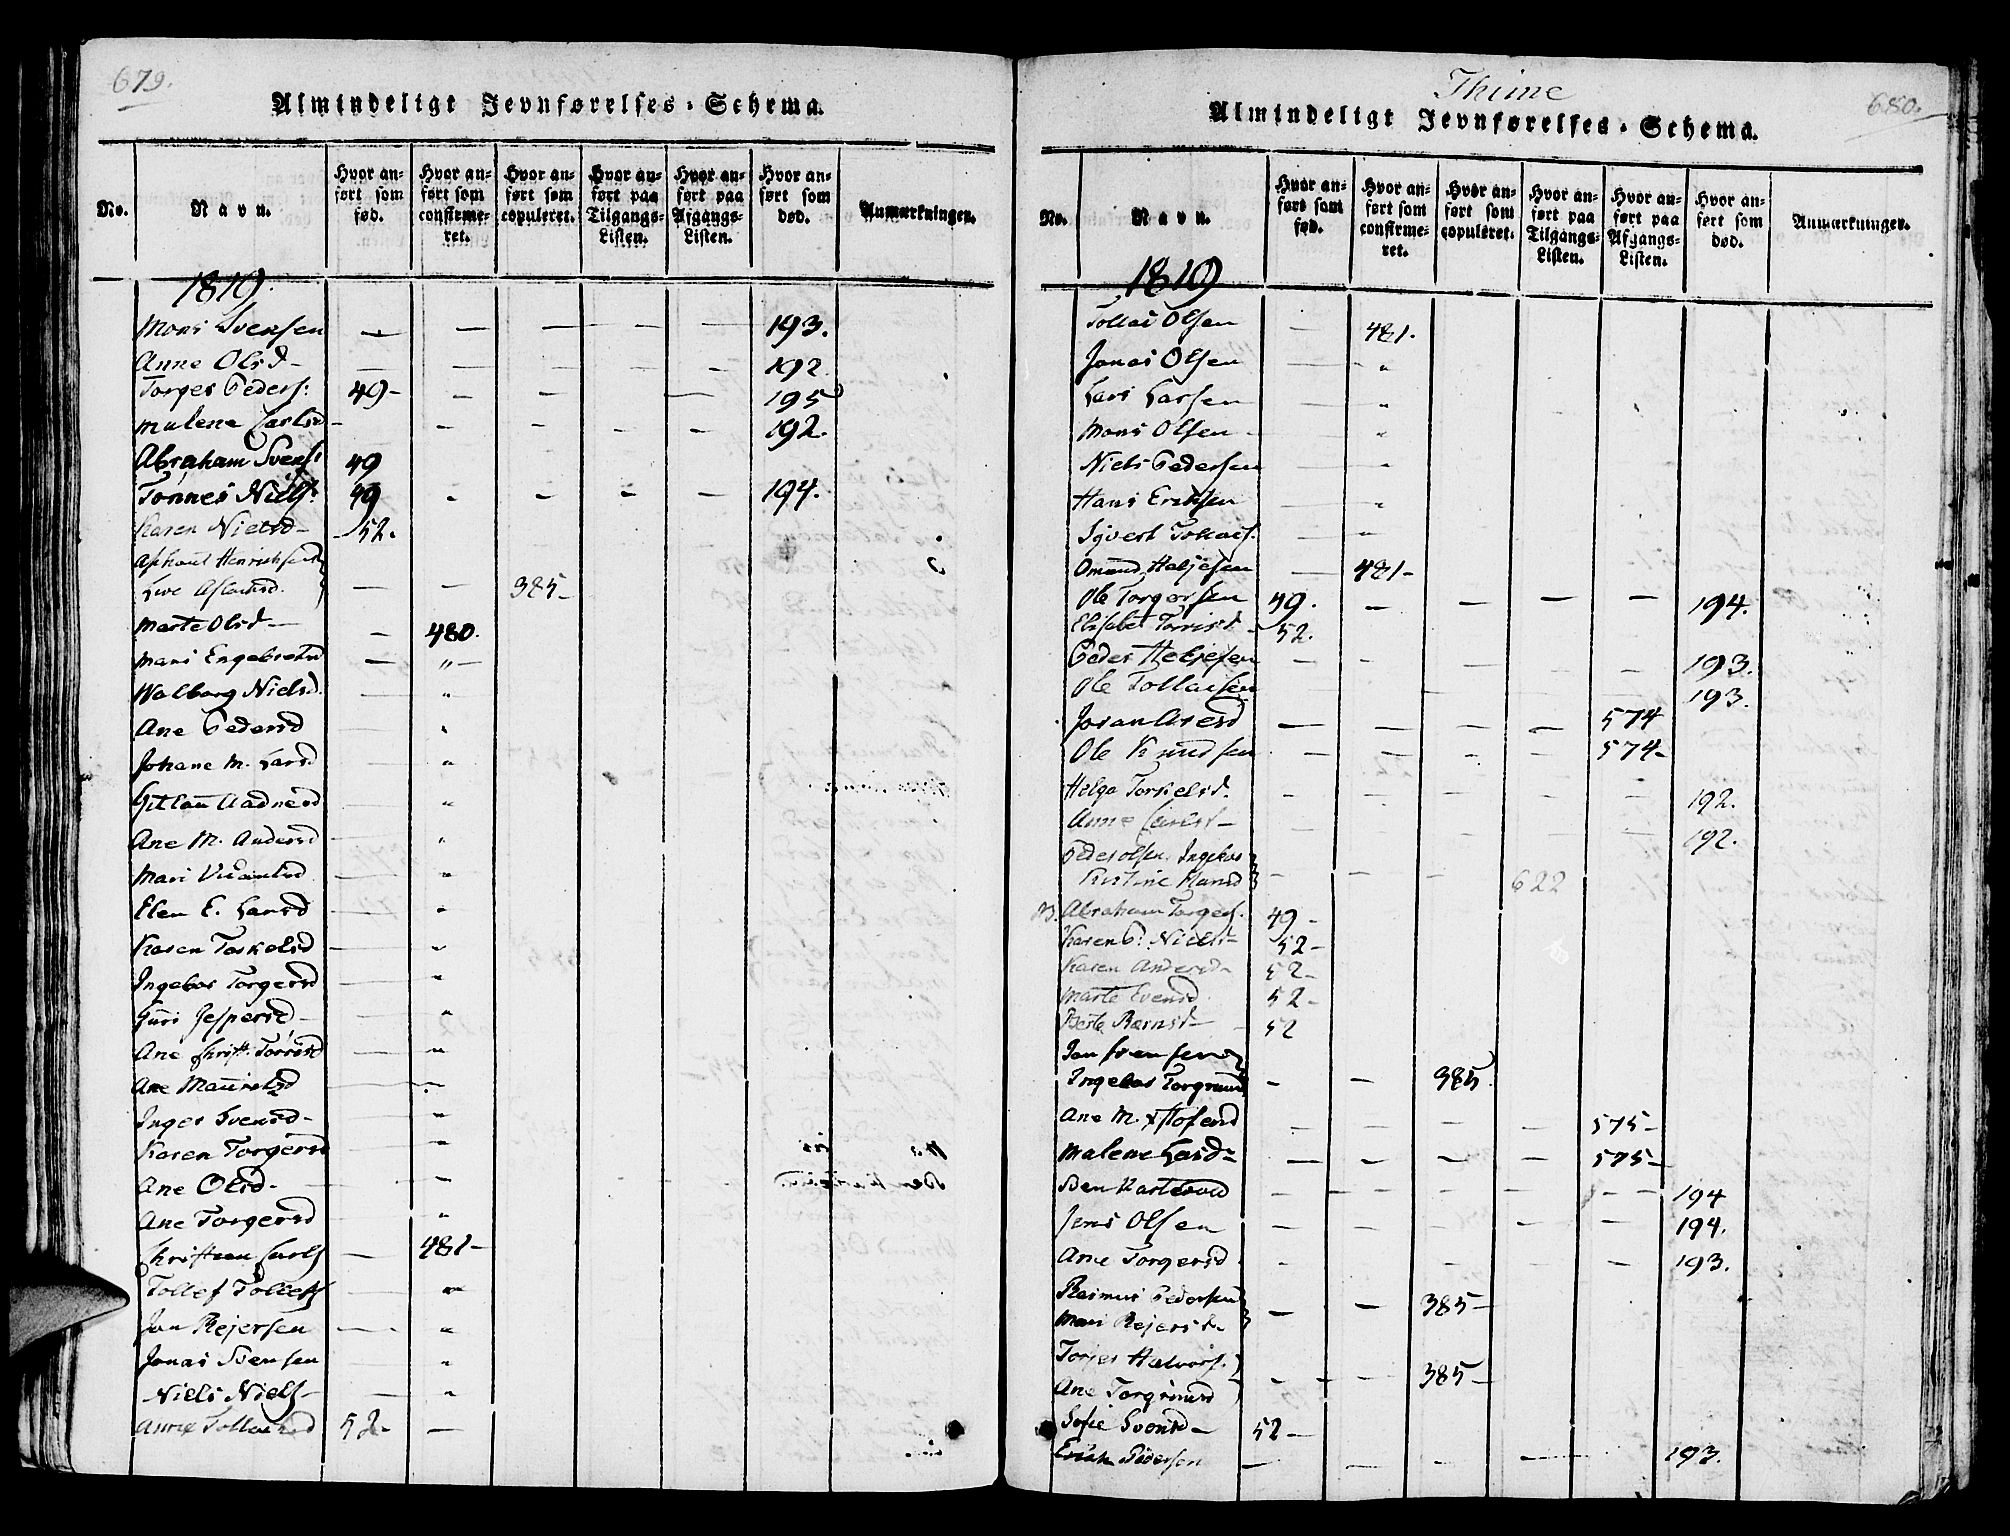 679.
Almindeligt Jevnførelses-Schema.
No.
Navn.
Hvor anført som fød.
Hvor anført som confirmeret.
Hvor anført som copuleret.
Hvor anført paa Tilgangs-Listen.
Hvor anført paa Afgangs-Listen.
Hvor anført som død.
Anmærkninger.
1819.
Mons Svensen — — — — — 193.
Anne Olsd — — — — — — 192.
Torger Peders: 49 — — — — 195
Malene Carlsd — — — — — 192.
Abraham Svens: 49
Tønnes Niels: 49 - - - — 194.
Karen Nielsd — 52.
Henrichsen
Live Aslachsd. — — 385 —
Marte Olsd — — 480.
Mari Engebretsd — „ —
Walborg Nielsd. — „
Ane Pedersd — „
Johane M. Larsd — „
Gitlau Aadnesd — „
Ane M. Andersd — „
Mari — „
Elen E. Larsd — „
Karen Torkelsd — „
Ingebor Torgersd — „
Guri Jespersd — „
Ane Christ. Torrisd — „
Ane Mauritsd — „
Inger Svensd — „
Karen Torgersd — „
Ane Olsd. — „
Ane Torgersd — „
Christian Carls — 481 —
Tollef Tollefs „
Jon Rejersen — „
Jonas Bensen „
Niels Niels — „
Anne Tollaksd 52 — —
Thime
680.
Almindeligt Jevnførelses-Schema.
No.
Navn.
Hvor anført som fød.
Hvor anført som confirmeret.
Hvor anført som copuleret.
Hvor anført paa Tilgangs-Listen.
Hvor anført paa Afgangs-Listen.
Hvor anført som død.
Anmærkninger.
1819
Tollas Olsen — 481.
Jonas Olsen — „
Lars Larsen — „
Mons Olsen — „
Niels Pedersen — „
Hans Eriksen — „
Sjvert Tollais. — „
Omund Heljesen — 481 —
Ole Torgersen 49. — — — — 194.
Elisabet Torrisd. 52.
Peder Heljesen — — — — — 193.
Ole Tollaisen — — — — — 193.
Joran Aresd — — — — 574
Ole Knudsen — — — — 574 —
Helga Torkelsd. — — — — — 192.
Anne Carlsd — — — — — — 192.
Peder Olsen. Ingebor
Kirstine Hansd — — — 622
Abraham Torgers. 49 —
Karen G. Nielsd — 52 —
Karen Andersd — 52 —
Marte Evensd 52 —
Berte Bernsd — 52
Jon Svensen
Ingebor Torgrimsd — — 385.
Ane M. Xstofersd — — — — 575 —
Malene Larsd — — — — — 575 —
Ben — — — — — 194
Jens Olsen — — — — — 194.
Ane Torgersd — — — — — 193.
Rasmus Pedersen
Mari Rejersd — — — 385 —
Torjer Halvors.
Ane Torgrimsd — — 385 —
Sofie Svensd — 52 —
Erich Pedersen — — — — — 193.